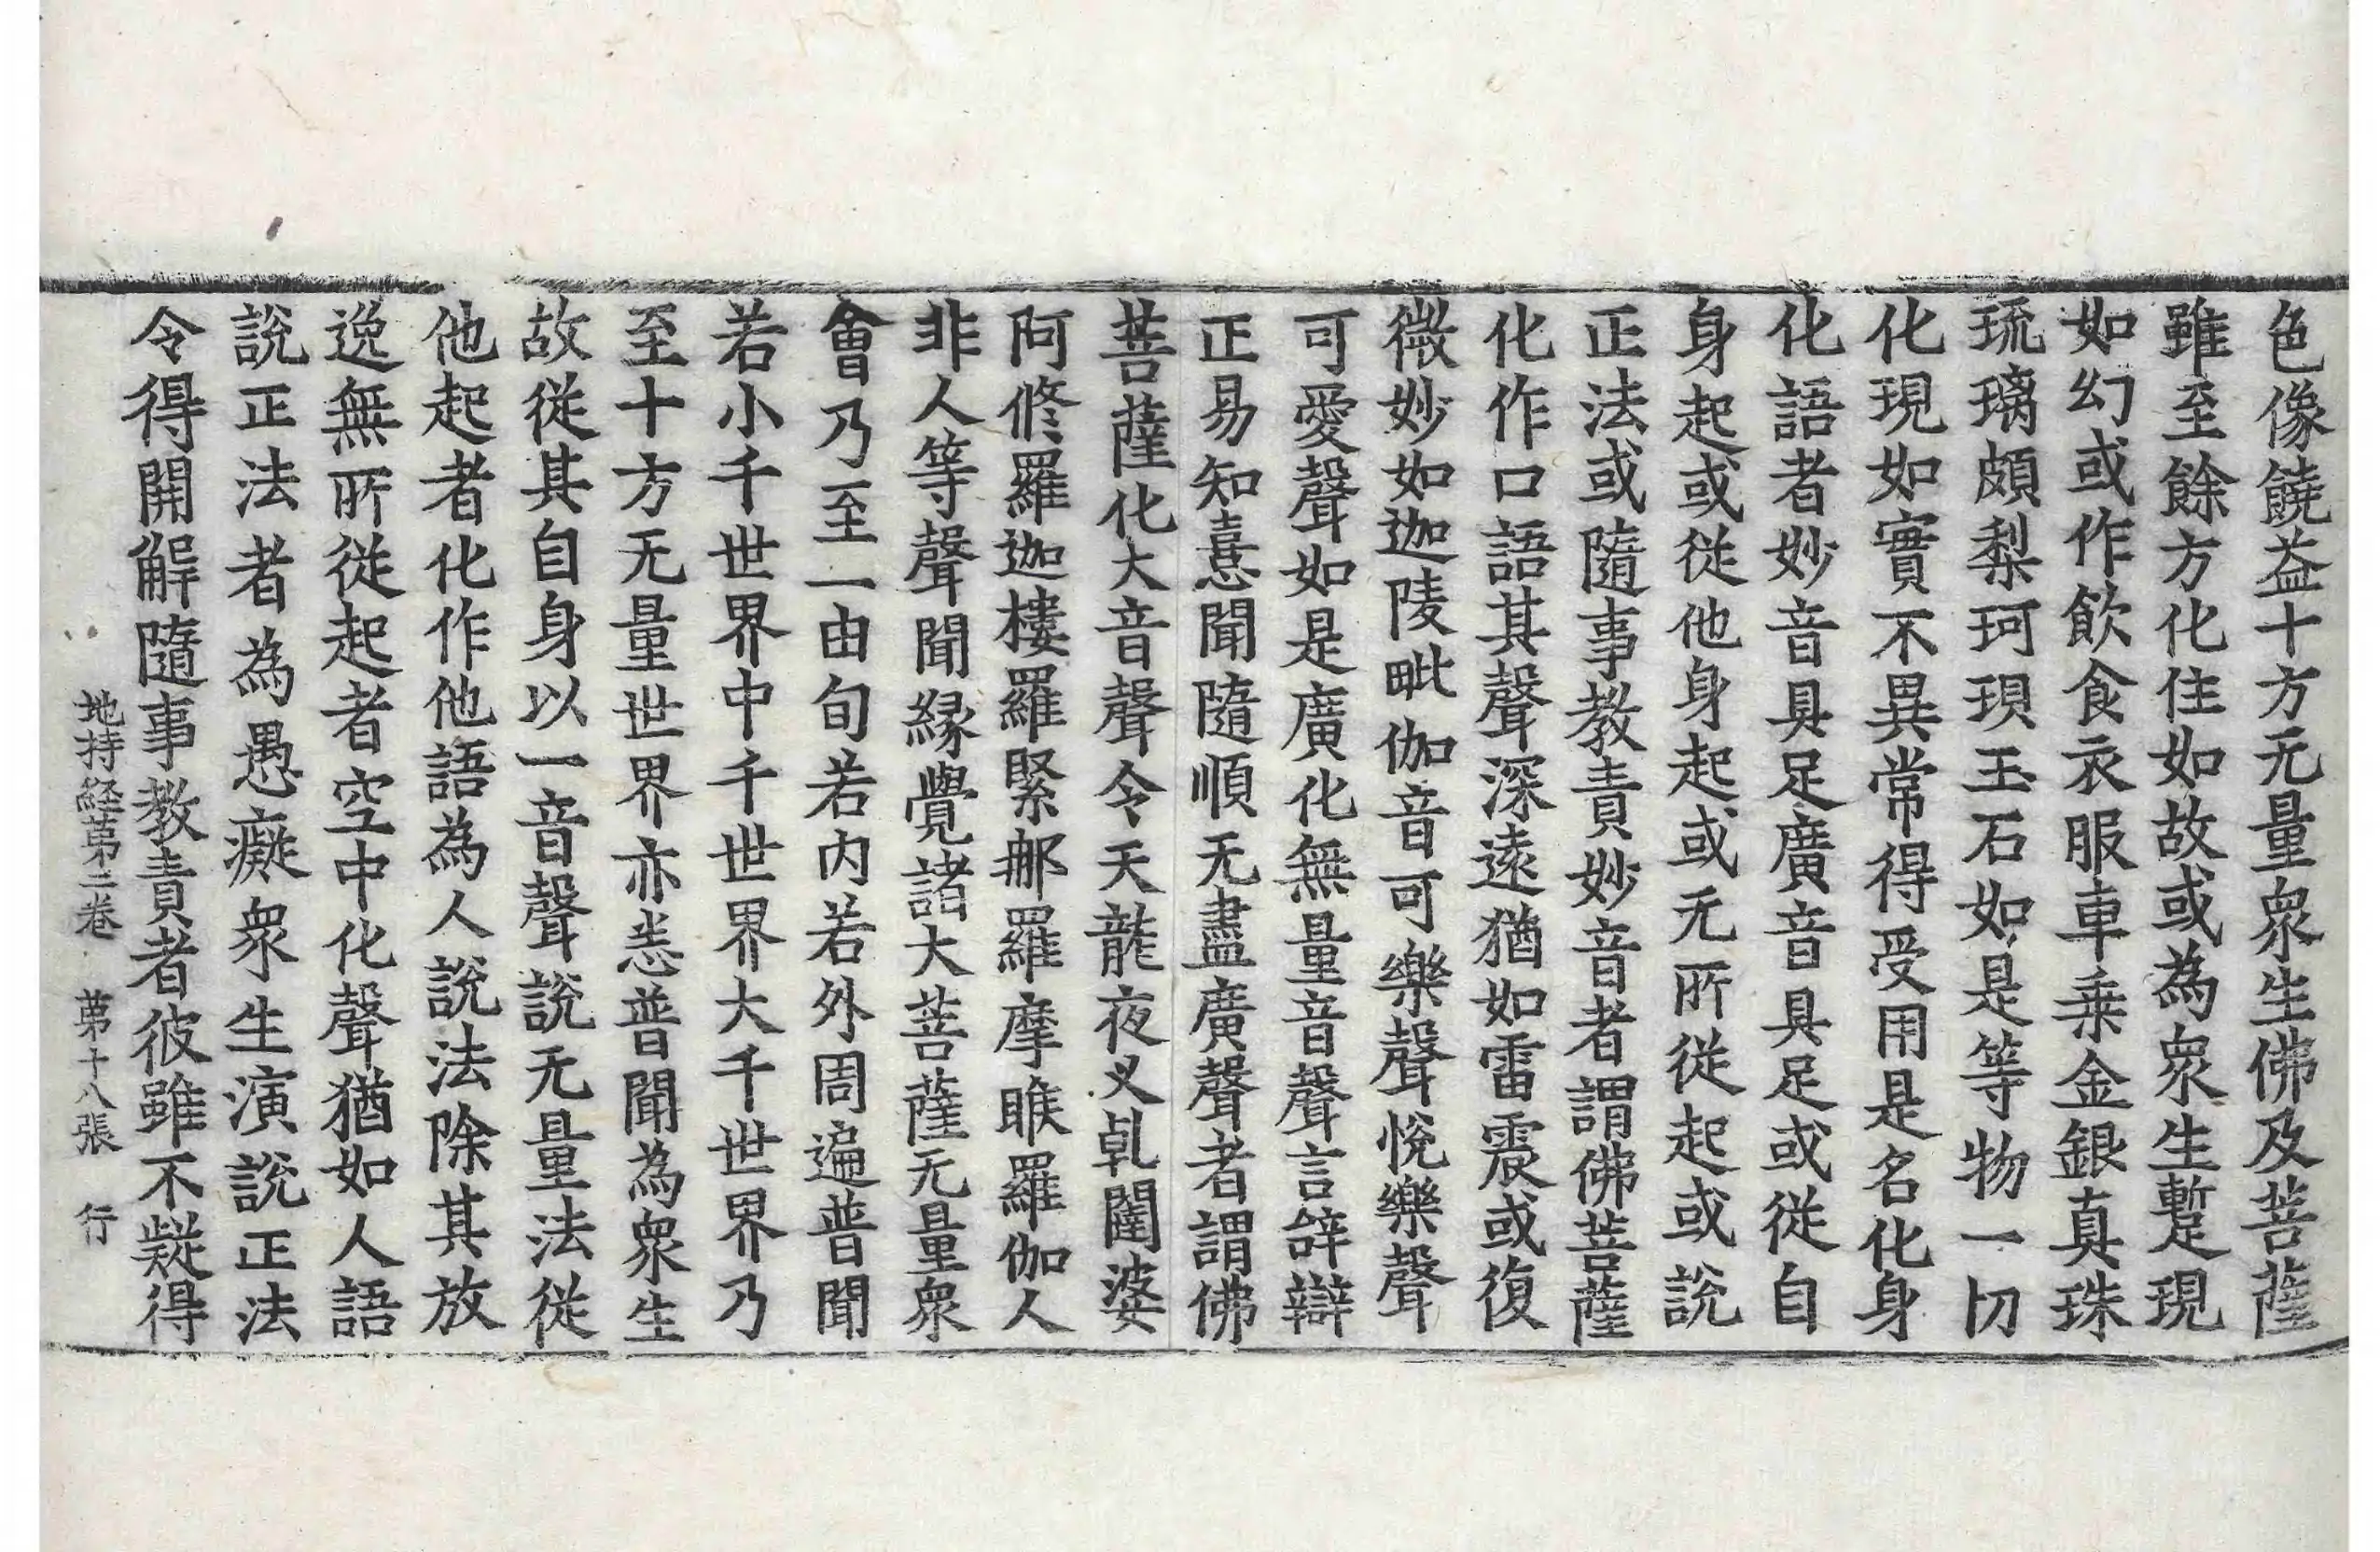 色像饒益十方无量衆生佛及菩薩
雖至餘方化住如故或為衆生蹔現
如幻或作飲食衣服車乗金銀真珠
琉璃頗梨珂珼玉石如是等物一切
化現如實不異常得受用是名化身
化語者妙音具足廣音具足或從自
身起或從他身起或无所從起或說
正法或隨事教責妙音者謂佛菩薩
化作口語其聲深遠猶如雷震或復
微妙如迦陵毗伽音可樂聲悅樂聲
可愛聲如是廣化無量音聲言辝辯
正易知憙聞隨順无盡廣聲者謂佛
菩薩化大音聲令天龍夜叉乹闥婆
阿修羅迦樓羅緊那羅摩睺羅伽人
非人等聲聞縁覺諸大菩薩无量衆
會乃至一由旬若内若外周遍普聞
若小千世界中千世界大千世界乃
至十方无量世界亦悉普聞為衆生
故從其自身以一音聲說无量法從
他起者化作他語為人說法除其放
逸無所從起者空中化聲猶如人語
說正法者為愚癡衆生演說正法
令得開解隨事教責者彼雖不疑得
地持経苐二卷 苐十八張 行